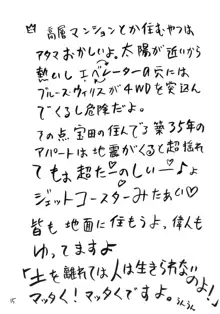 高層マンションとか住むやつは
アタマおかしいよ。太陽が近いから
熱いしエベレーターの穴には
ブルースウィリスが4WDを突込ん
でくるし危険だよ。
その点、宝田の住んでる築35年の
アパートは地震がくると超揺れ
ても、超た〜のしい〜♪♪
ジェットコースターみたあい♡
皆も地面に住もうよ、偉人も
ゆってますよ
「土を離れては人は生きられないのよ!」
マッタく!マッタくですよ。うんうん
15